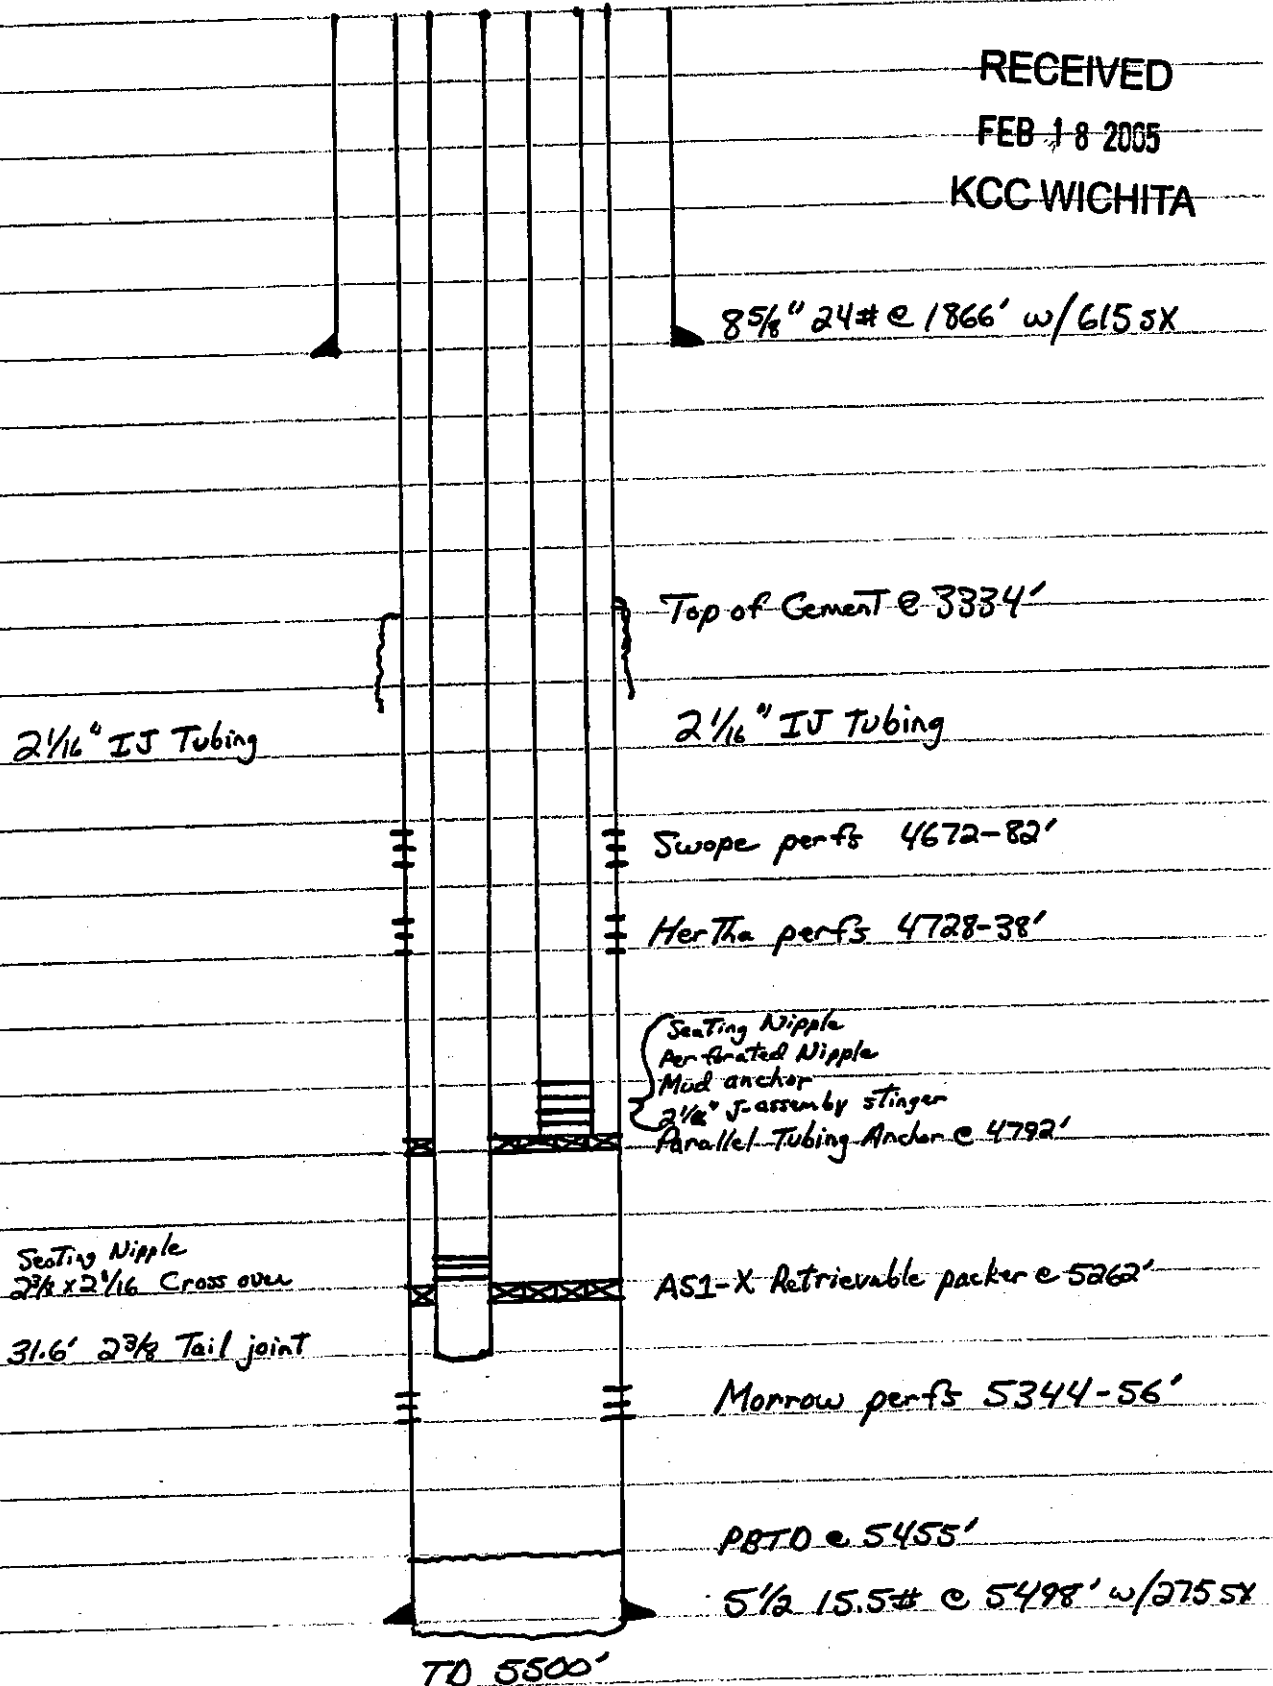 RECEIVED
FEB 18 2005
KCC WICHITA
8 5/8" 24# @ 1866' w/615 sx
Top of Cement @ 3334'
2 1/16" IJ Tubing
2 1/16" IJ Tubing
Swope perfs 4672-82'
Hertha perfs 4728-38'
Seating Nipple
Perforated Nipple
Mud anchor
2 1/16" J-assembly stinger
Parallel Tubing Anchor @ 4792'
Seating Nipple
2 3/8 x 2 1/16 Cross over
AS1-X Retrievable packer @ 5262'
31.6' 2 3/8 Tail joint
Morrow perfs 5344-56'
PBTD @ 5455'
5 1/2 15.5# @ 5498' w/275 sx
TD 5500'